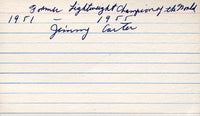 Former Lightweight Champion of the World
1951 - 1955
Jimmy Carter